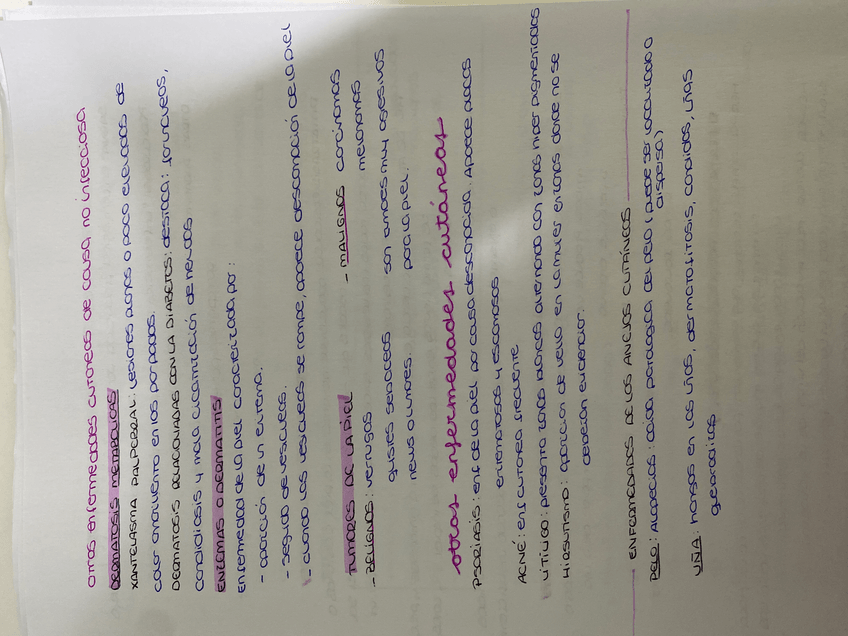 Otras enfermedades cutáneas de causa no infecciosa
DERMATOSIS METABÓLICAS
XANTELASMA PALPEBRAL: Lesiones planas o poco elevadas de
color amarillento en los parpados.
DERMATOSIS RELACIONADAS CON LA DIABETES: destaca: forunculos,
candidiasis y mala cicatrización de heridas
ENZEMAS O DERMATITIS
Enfermedad de la piel caracterizada por:
- aparición de un eritema.
- seguido de vesículas.
- cuando las vesículas se rompe, aparece descamación de la piel
TUMORES DE LA PIEL
- BELIGNOS: verrugas
quistes sebáceos
nevus o lunares.
- MALIGNOS carcinomas
melanomas
son tumores muy agresivos
para la piel.
otras enfermedades cutáneas
PSORIASIS: enf de la piel por causa desconocida. Aparece placas
eritematosas y escamosas
ACNÉ: enf cutánea frecuente
VITÍLIGO: presenta zonas blancas alternando con zonas hiper pigmentadas
HIRSUTISMO: aparición de vello en la mujer en zonas donde no se
deberían evidenciar.
ENFERMEDADES DE LOS ANEJOS CUTÁNEOS
PELO: Alopecias: caída patologica del pelo (puede ser localizada o
dispersa)
UÑA: hongos en las uñas, dermatofitosis, candidas, uñas
quebradizas